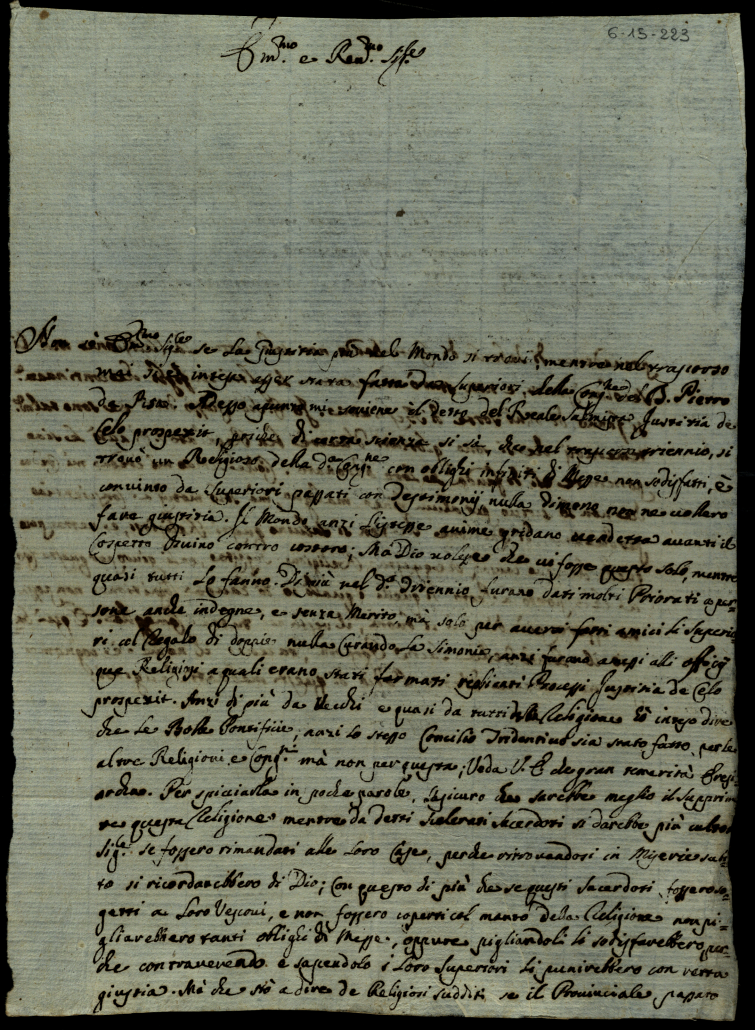 6-15-223
Em.mo e Rev.mo Sig.re
Non Em.mo Sig.re se la Giustizia più nel Mondo si trovi, mentre nel trascorso
mai si è intesa esser stata fatta da Superiori della Cong.ne del B. Pietro
da Pisa. Adesso apunto mi soviene il detto del Reale Salmista Justitia de
Celo prospexit, perche di certa scienza si sà, che nel trascorso triennio, si
trovò un Religioso della d.a Cong.ne con oblighi infiniti di Messe non sodisfatti, è
convinto da Superiori passati con Testimonij nulla dimeno non ne vollero
fare giustizia. Il Mondo anzi l'istesse anime gridano vendetta avanti il
Cospetto Divino contro costoro; Mà Dio volesse che vi fosse questo solo, mentre
quasi tutti lo fanno. Di più nel d.o Triennio furano dati molti Priorati a per-
sone anche indegne, e senza Merito, mà solo per avere fatti amici li Superio
ri col Regalo di doppie nulla Curando la Simonia, anzi furano amessi alli officij
que Religiosi a quali erano stati formati replicati Processi Justitia de Celo
prospexit. Anzi di più da Vecchi e quasi da tutti della Religione hò inteso dire
che le Bolle Pontificie, anzi lo stesso Concilio Tridentino sia stato fatto per le
altre Religioni e Cong.ni mà non per questa; Veda V. E. che gran temerità Eresi-
archa. Per spiciarla in poche parole, l'assicuro che sarebbe meglio il supprime
re questa Religione mentre da detti scelerati Sacerdoti si darebbe più culto al
Sig.re se fossero rimandati alle loro Case, perche ritrovandosi in Miserie subi-
to si ricordarebbero di Dio; Con questo di più che se questi Sacerdoti fossero so-
getti a loro Vescovi, e non fossero coperti col manto della Religione non pi-
gliarebbero tanti oblighi di Messe, oppure pigliandoli li sodisfarebbero per-
che contravenendo e sapendolo i loro Superiori li punirebbero con retta
giustizia. Mà che stò a dire de Religiosi sudditi se il Provinciale passato